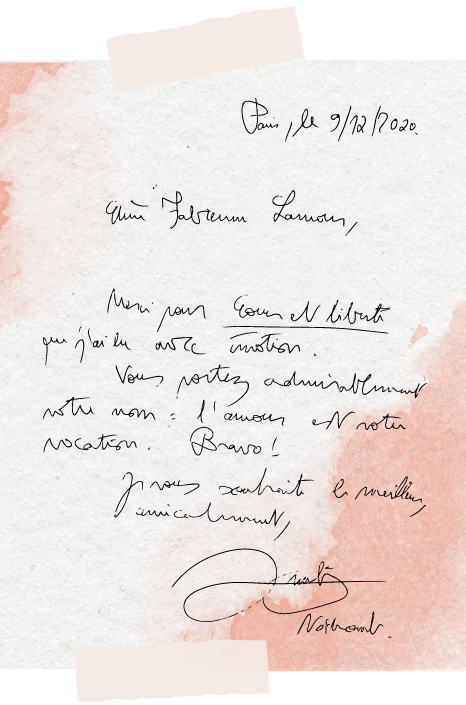 Paris, le 9/12/2020.
Chère Fabienne Lamour,
Merci pour et liberté
que j'ai lu avec émotion.
Vous portez admirablement
votre nom : l'amour est votre
vocation. Bravo !
Je vous souhaite le meilleur,
amicalement,
Nothomb.